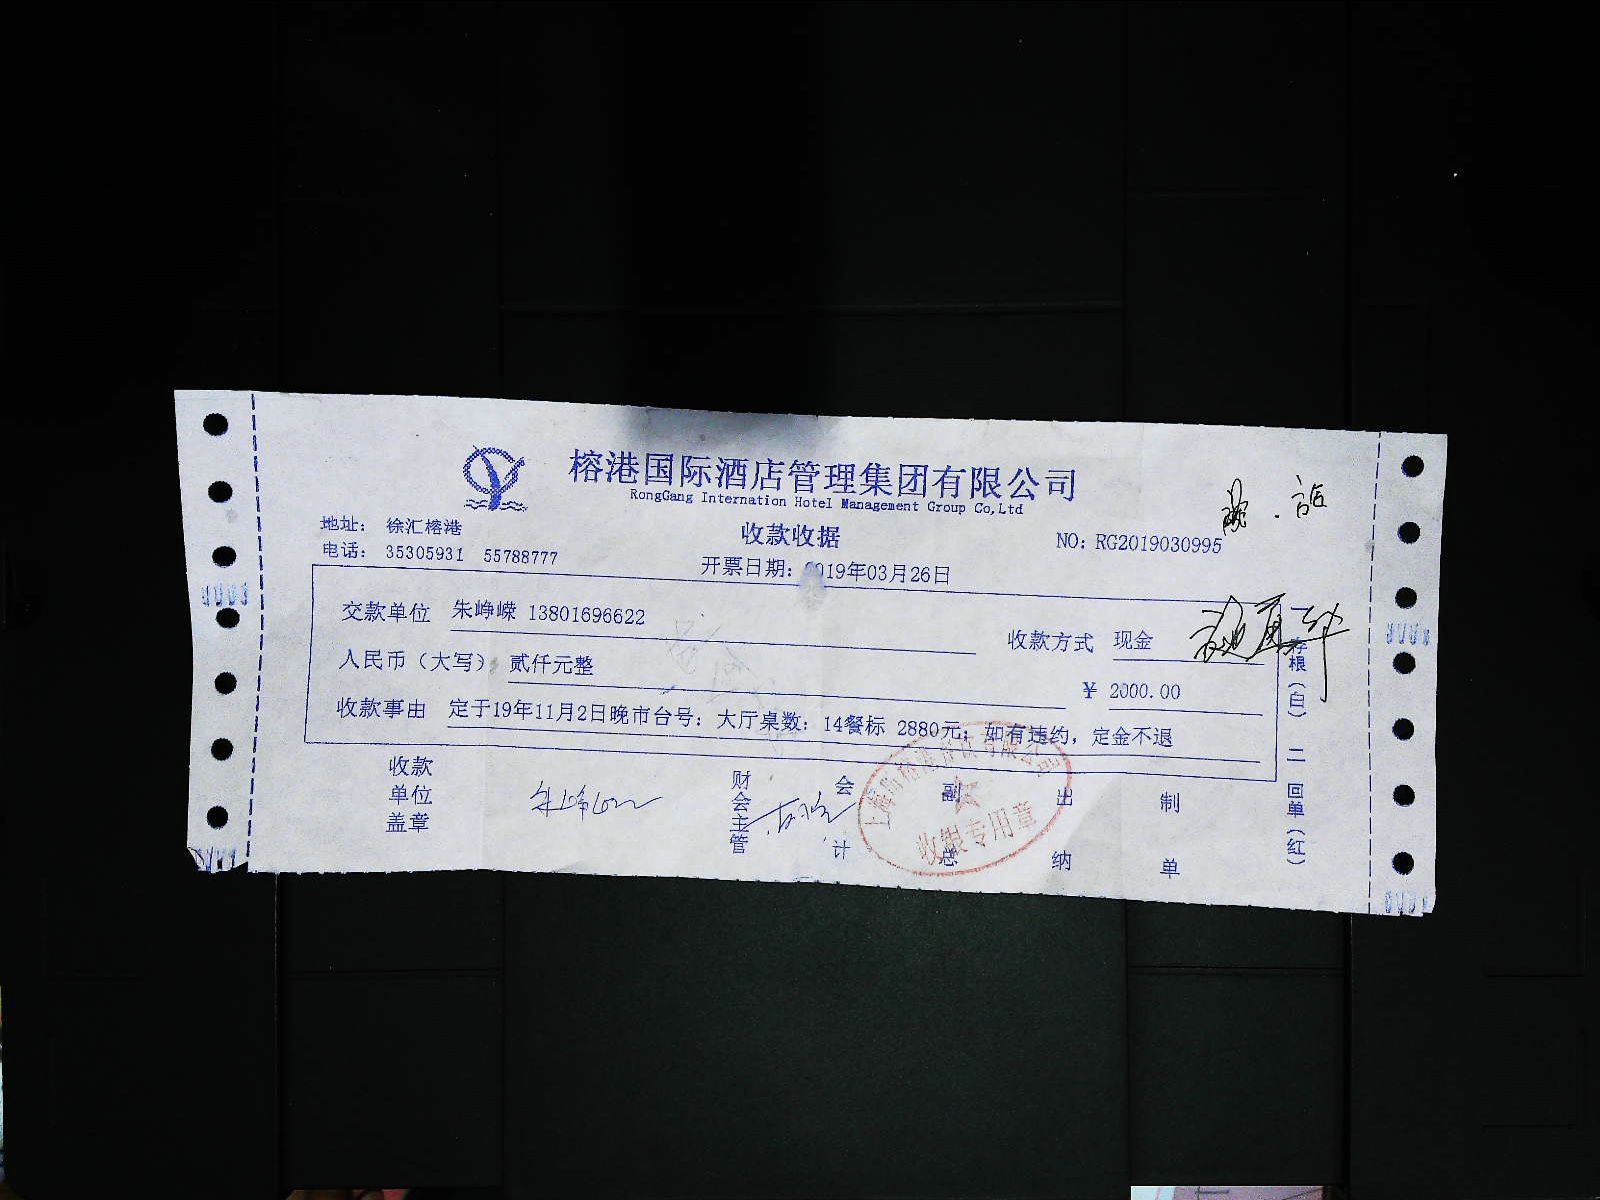 榕港国际酒店管理集团有限公司
RongGang Internation Hotel Management Group Co,Ltd
地址： 徐汇榕港
收款收据
电话： 35305931 55788777
NO：RG2019030995
开票日期：2019年03月26日
交款单位 朱峥嵘 13801696622
收款方式 现金
人民币（大写） 贰仟元整
￥ 2000.00
收款事由 定于19年11月2日晚市台号：大厅桌数：14餐标 2880元；如有违约，定金不退
一存根（白） 二回单（红）
收款单位盖章
财会主管
会计
副总
出纳
制单
收银专用章